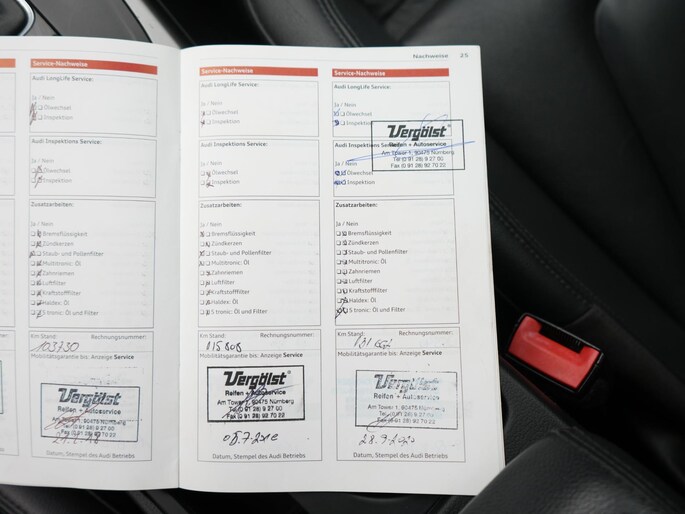 Nachweise 25
Audi LongLife Service:
Ja / Nein
Ölwechsel
Inspektion
Audi Inspektions Service:
Ja / Nein
Ölwechsel
Inspektion
Zusatzarbeiten:
Ja / Nein
Bremsflüssigkeit
Zündkerzen
Staub- und Pollenfilter
Multitronic: Öl
Zahnriemen
Luftfilter
Kraftstofffilter
Haldex: Öl
S tronic: Öl und Filter
Km Stand: Rechnungsnummer:
103730
Mobilitätsgarantie bis: Anzeige Service
Vergölst
Reifen + Autoservice
Am Tower 1, 90475 Nürnberg
Tel (0 91 28) 9 27 00
Fax (0 91 28) 92 70 22
Datum, Stempel des Audi Betriebs
Service-Nachweise
Audi LongLife Service:
Ja / Nein
Ölwechsel
Inspektion
Audi Inspektions Service:
Ja / Nein
Ölwechsel
Inspektion
Zusatzarbeiten:
Ja / Nein
Bremsflüssigkeit
Zündkerzen
Staub- und Pollenfilter
Multitronic: Öl
Zahnriemen
Luftfilter
Kraftstofffilter
Haldex: Öl
S tronic: Öl und Filter
Km Stand: Rechnungsnummer:
Mobilitätsgarantie bis: Anzeige Service
Vergölst
Reifen + Autoservice
Am Tower 1, 90475 Nürnberg
Tel (0 91 28) 9 27 00
Fax (0 91 28) 92 70 22
Datum, Stempel des Audi Betriebs
Service-Nachweise
Audi LongLife Service:
Ja / Nein
Ölwechsel
Inspektion
Vergölst
Reifen + Autoservice
Am Tower 1, 90475 Nürnberg
Tel (0 91 28) 9 27 00
Fax (0 91 28) 92 70 22
Audi Inspektions
Ja / Nein
Ölwechsel
Inspektion
Zusatzarbeiten:
Ja / Nein
Bremsflüssigkeit
Zündkerzen
Staub- und Pollenfilter
Multitronic: Öl
Zahnriemen
Luftfilter
Kraftstofffilter
Haldex: Öl
S tronic: Öl und Filter
Km Stand: Rechnungsnummer:
Mobilitätsgarantie bis: Anzeige Service
Vergölst
Reifen + Autoservice
Am Tower 1, 90475 Nürnberg
Tel. (0 91 28) 9 27 00
Fax (0 91 28) 92 70 22
Datum, Stempel des Audi Betriebs